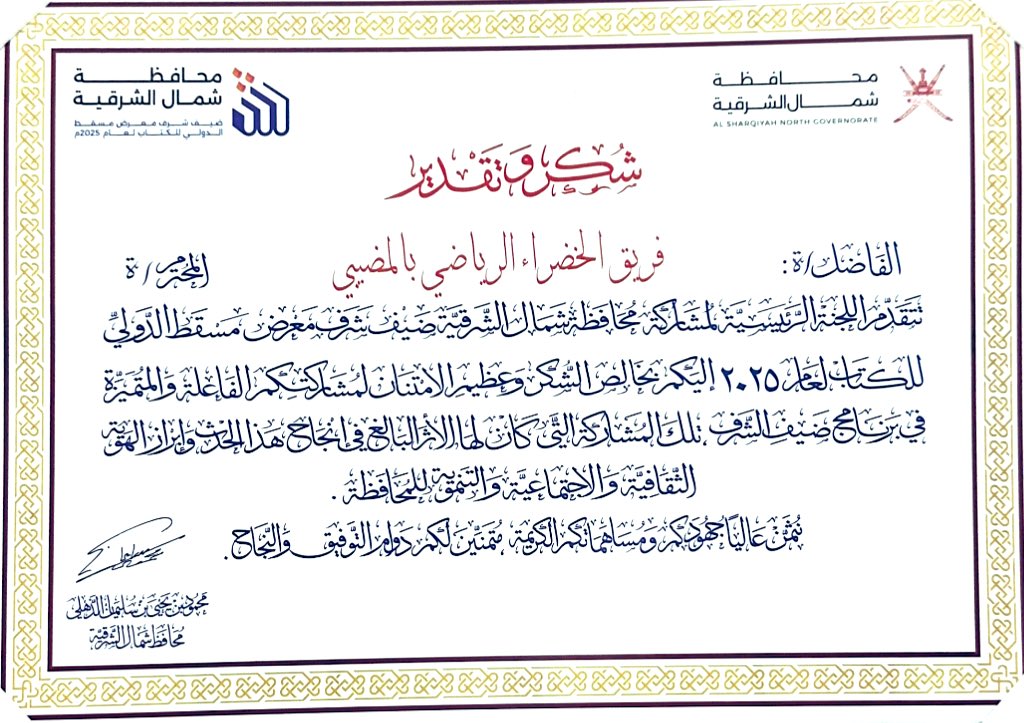 محافظة
شمال الشرقية
AL SHARQIYAH NORTH GOVERNORATE
محافظة
شمال الشرقية
ضيف شرف معرض مسقط
الدولي للكتاب لعام 2025م
شكر وتقدير
الفاضل/ة: فريق الخضراء الرياضي بالمضيبي المحترم/ة
تتقدم اللجنة الرئيسية لمشاركة محافظة شمال الشرقية ضيف شرف معرض مسقط الدولي
للكتاب لعام ٢٠٢٥ إليكم بخالص الشكر وعظيم الامتنان لمشاركتكم الفاعلة والمتميزة
في برنامج ضيف الشرف، تلك المشاركة التي كان لها الأثر البالغ في إنجاح هذا الحدث وإبراز الهوية
الثقافية والاجتماعية والتنموية للمحافظة.
نثمن عالياً جهودكم ومساهماتكم الكريمة، متمنين لكم دوام التوفيق والنجاح.
محمود بن يحيى بن سليمان الذهلي
محافظ شمال الشرقية